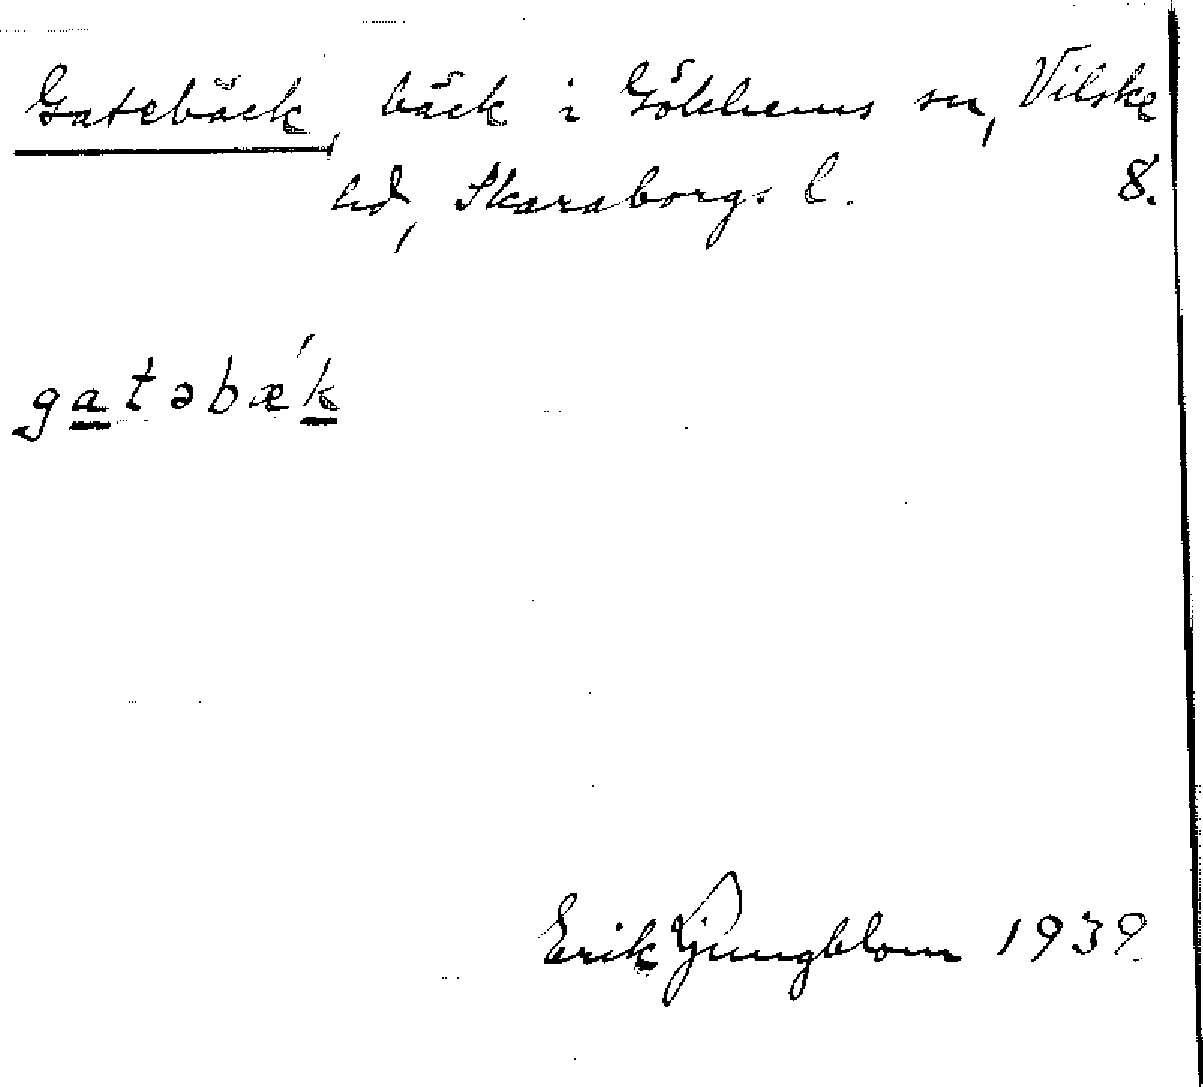 Gatebäck, bäck i Gökhems sn, Vilske
hd, Skaraborgs l. 8.
gatəbæ´k
Erik Ljungblom 1939